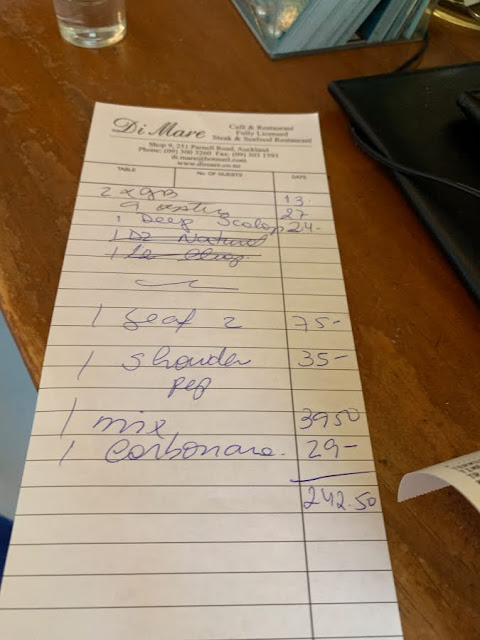 Di Mare
Café & Restaurant
Fully Licensed
Steak & Seafood Restaurant
Shop 9, 251 Parnell Road, Auckland
Phone: (09) 300 3260 Fax: (09) 303 1393
di.mare@hotmail.com
www.dimare.co.nz
TABLE No. OF GUESTS DATE
2 x GB 13.
9 27
1 Deep Scolop 24-
1 Dz Natural
1
1 Seaf 2 75-
1 Showder 35-
pep
1 mix 39 50
1 Carbonara. 29-
242.50